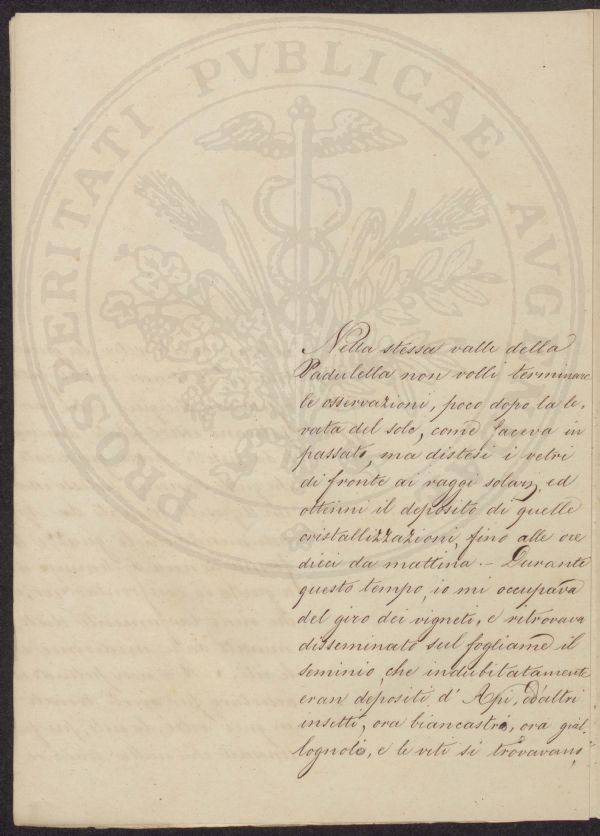 PROSPERITATI PVBLICAE AVGE
Nella stessa valle della
Padulella non volli terminare
le osservazioni, poco dopo la le,
vata del sole, come faceva in
passato, ma distesi i vetri
di fronte ai raggi solari, ed
ottenni il deposito di quelle
cristallizzazioni, fino alle ore
dieci da mattina. - Durante
questo tempo, io mi occupava
del giro dei vigneti, e ritrovava
disseminato sul fogliame il
seminio, che indubitatamente
eran depositi d' Api, od'altri
insetti, ora biancastri, ora gial-
lognoli, e le viti si trovavano,